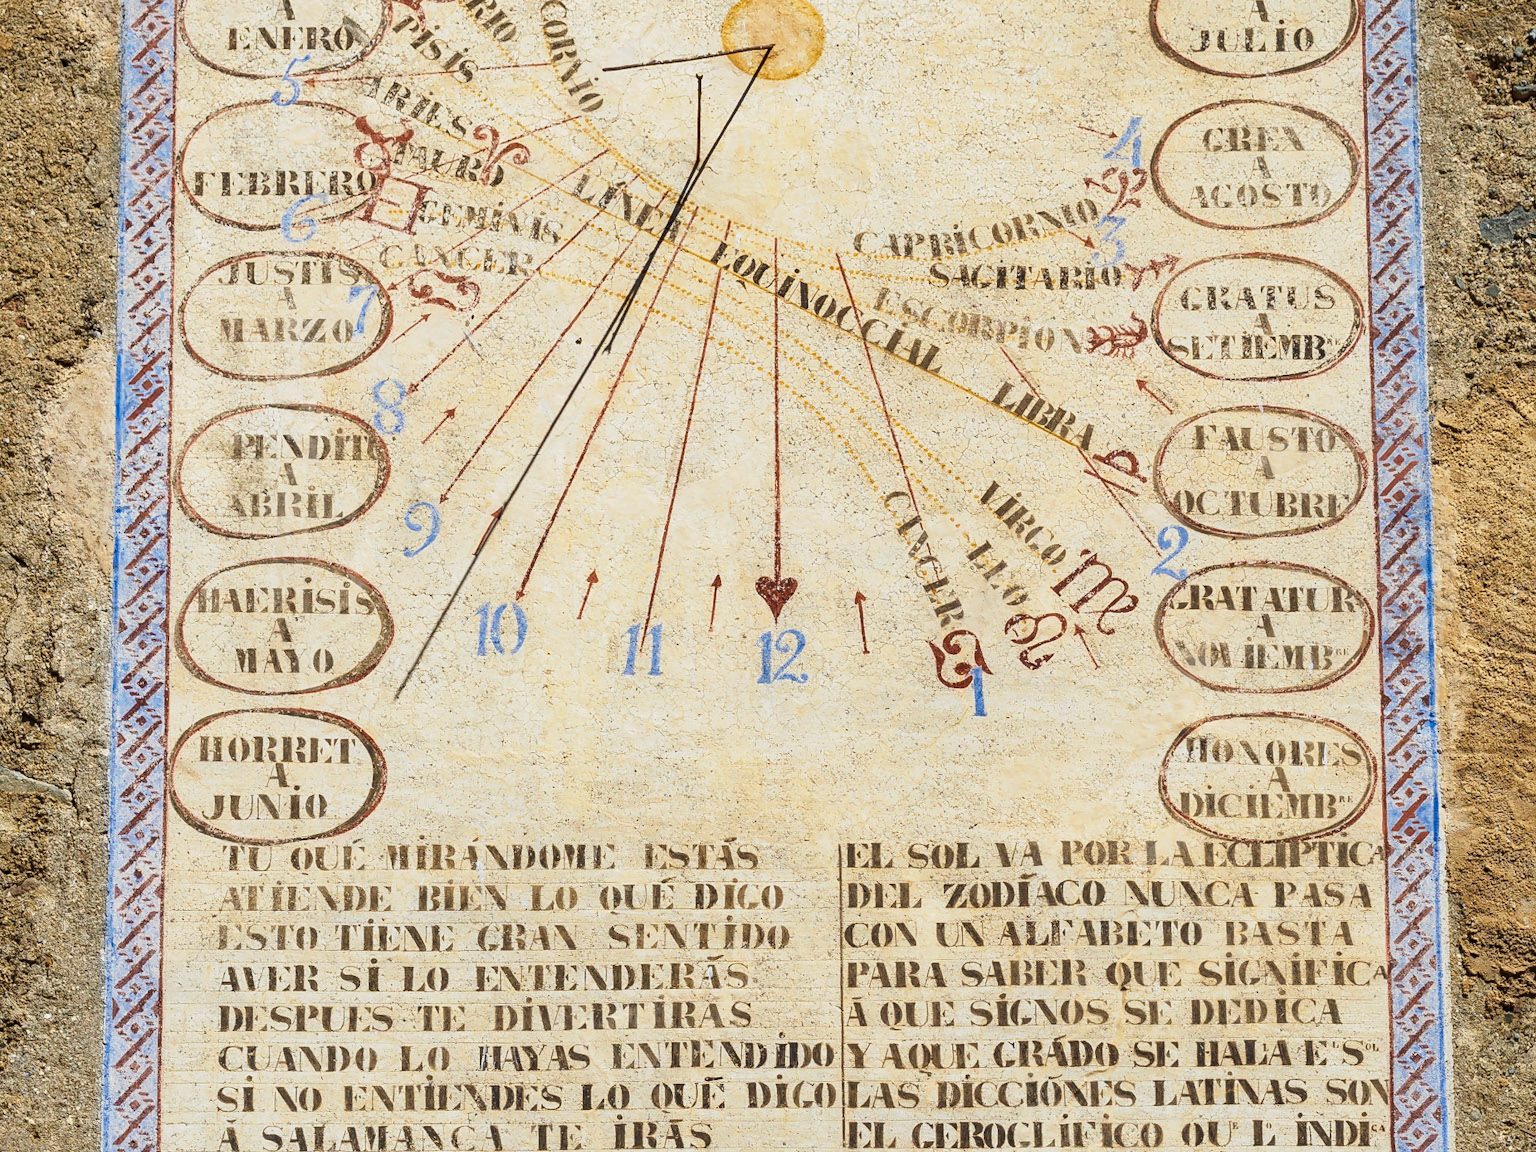 A
ENERO
FEBRERO
JUSTIS
A
MARZO
PENDIT
A
ABRIL
HAERISIS
A
MAYO
HORRET
A
JUNIO
PISIS
ARIES
TAURO
GEMINIS
CANCER
LÍNEA EQUINOCCIAL
LIBRA
CAPRICORNIO
SAGITARIO
ESCORPION
VIRGO
LEO
CANCER
5
6
7
8
9
10
11
12
1
2
3
4
A
JULIO
GREX
A
AGOSTO
GRATUS
A
SETIEMBRE
FAUSTO
A
OCTUBRE
GRATATUR
A
NOVIEMBRE
HONORES
A
DICIEMBRE
TU QUÉ MIRÁNDOME ESTÁS
ATIENDE BIEN LO QUÉ DIGO
ESTO TIENE GRAN SENTIDO
AVER SI LO ENTENDERÁS
DESPUES TE DIVERTIRAS
CUANDO LO HAYAS ENTENDIDO
SI NO ENTIENDES LO QUE DIGO
Á SALAMANCA TE IRÁS
EL SOL VA POR LA ECLÍPTICA
DEL ZODÍACO NUNCA PASA
CON UN ALFABETO BASTA
PARA SABER QUE SIGNIFICA
Á QUE SIGNOS SE DEDICA
Y AQUE GRÁDO SE HALA EL SOL
LAS DICCIÓNES LATINAS SON
EL GEROGLIFICO QUE LO INDICA